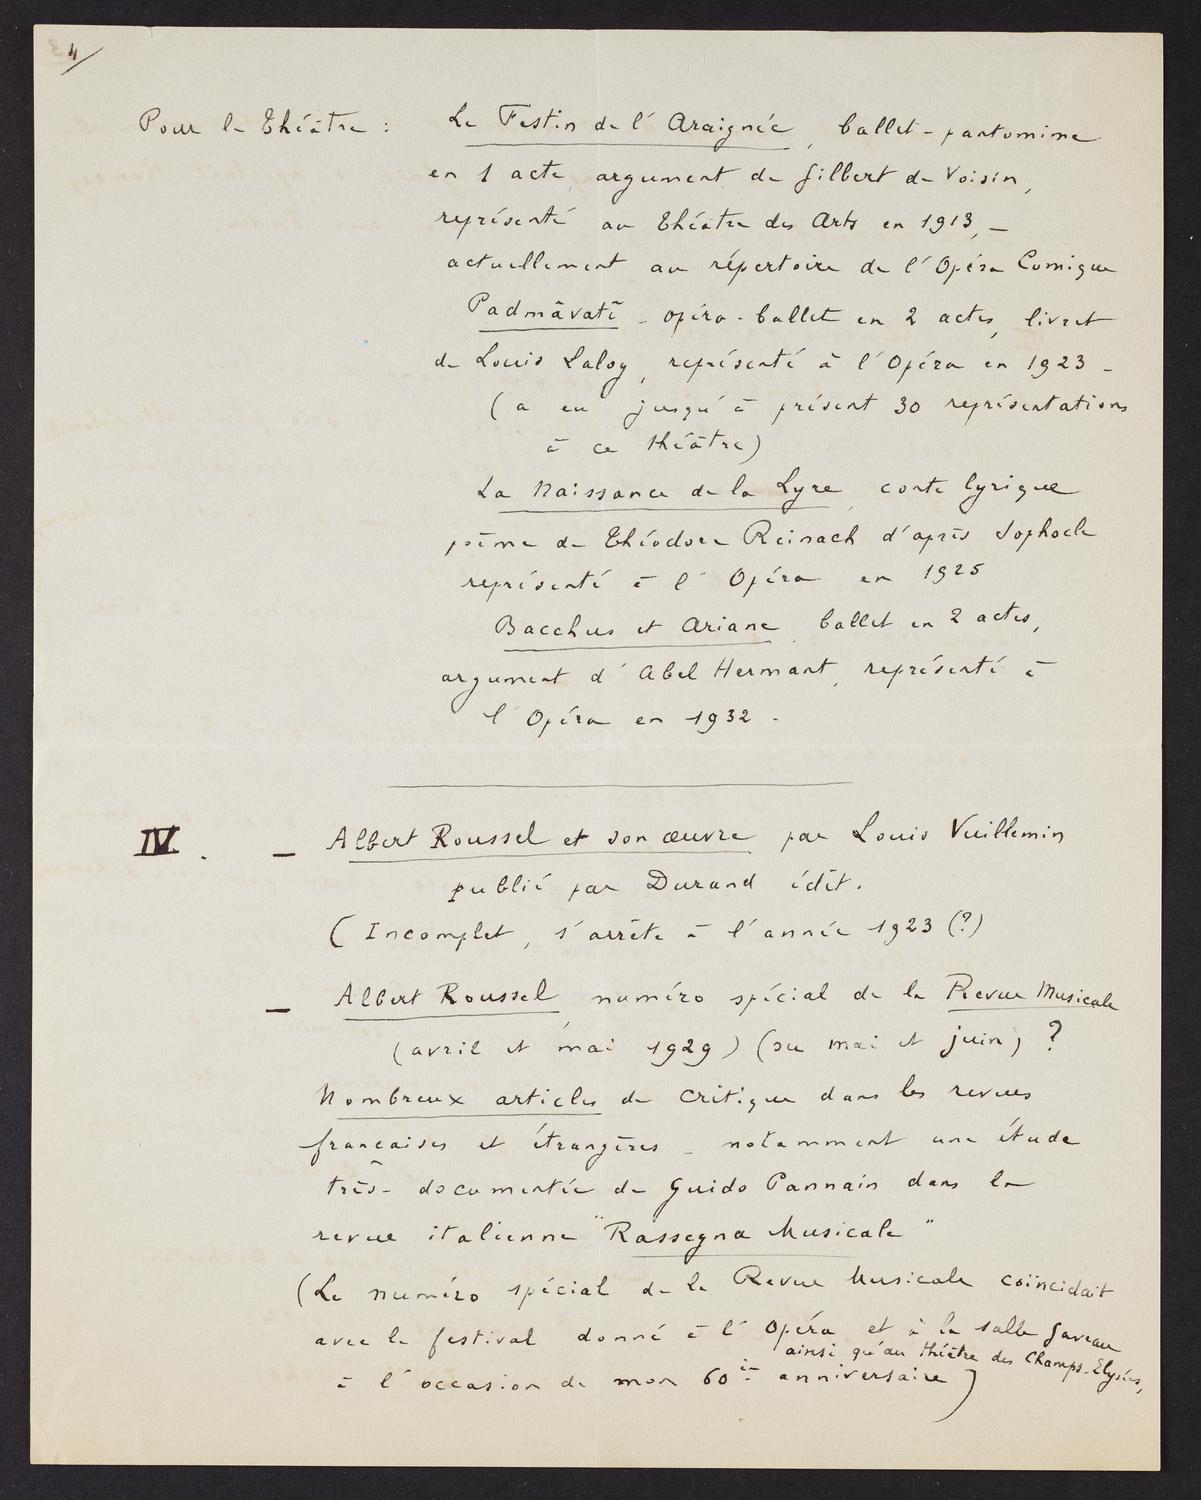 4/
Pour le Théâtre : Le Festin de l'Araignée, ballet-pantomime
en 1 acte, argument de Gilbert de Voisin,
représenté au Théâtre des Arts en 1913, –
actuellement au répertoire de l'Opéra Comique
Padmâvatî – opéra-ballet en 2 actes, livret
de Louis Laloy, représenté à l'Opéra en 1923 –
(a eu jusqu'à présent 30 représentations
à ce théâtre)
La Naissance de la Lyre, conte lyrique
poème de Théodore Reinach d'après Sophocle
représenté à l'Opéra en 1925
Bacchus et Ariane, ballet en 2 actes,
argument d'Abel Hermant, représenté à
l'Opéra en 1932 .
IV. – Albert Roussel et son œuvre par Louis Vuillemin
publié par Durand édit.
(Incomplet, s'arrête à l'année 1923 (?)
– Albert Roussel, numéro spécial de la Revue Musicale
(avril et mai 1929) (ou mai et juin) ?
Nombreux articles de critique dans les revues
françaises et étrangères – notamment une étude
très documentée de Guido Pannain dans la
revue italienne "Rassegna Musicale"
(Le numéro spécial de la Revue Musicale coïncidait
avec le festival donné à l'Opéra et à la salle Gaveau
ainsi qu'au théâtre des Champs-Elysées,
à l'occasion de mon 60ie anniversaire)